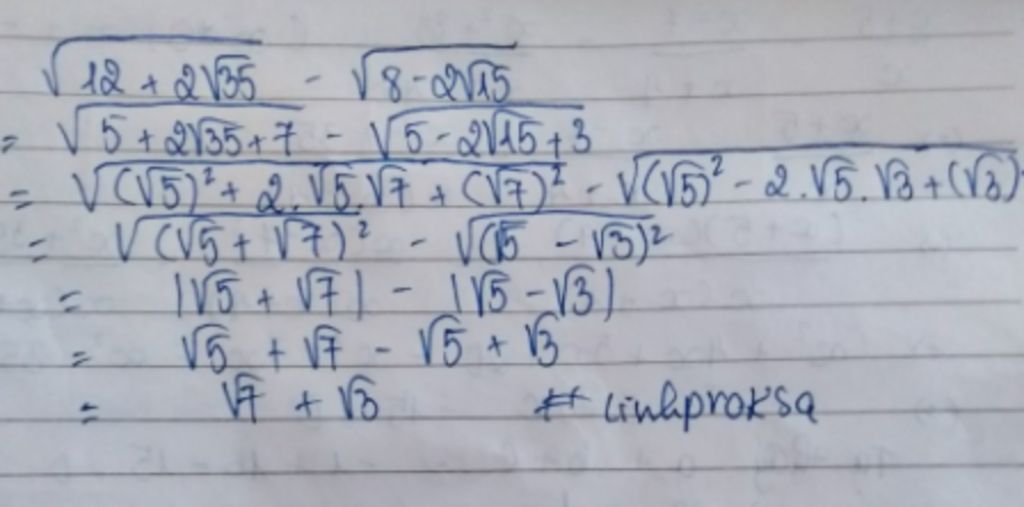 √(12 + 2√35) - √(8 - 2√15)
= √(5 + 2√35 + 7) - √(5 - 2√15 + 3)
= √((√5)² + 2.√5.√7 + (√7)²) - √((√5)² - 2.√5.√3 + (√3)²)
= √((√5 + √7)²) - √((√5 - √3)²)
= |√5 + √7| - |√5 - √3|
= √5 + √7 - √5 + √3
= √7 + √3 # linhproksa